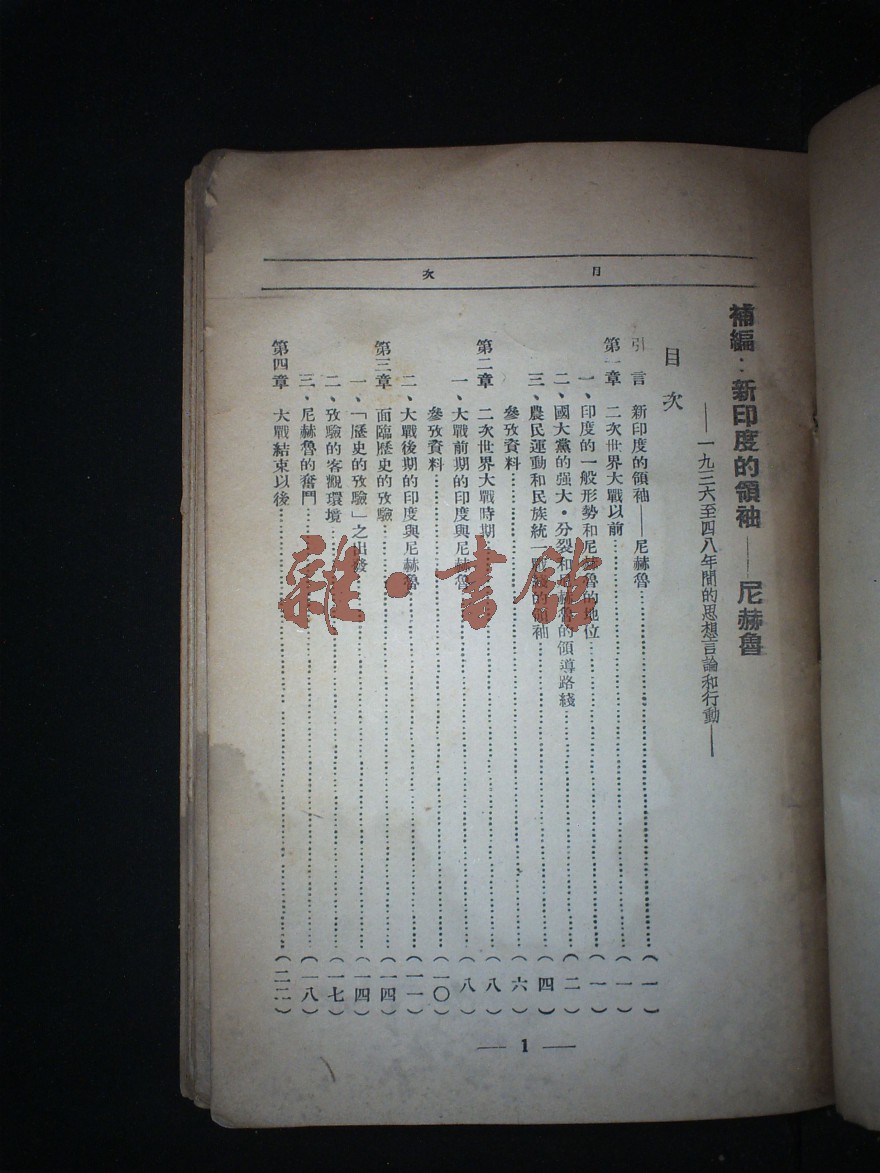 目次
補編：新印度的領袖——尼赫魯
——一九三六至四八年間的思想言論和行動——
目次
引言 新印度的領袖——尼赫魯……(一)
第一章 二次世界大戰以前……(一)
一、印度的一般形勢和尼赫魯的地位……(一)
二、國大黨的强大·分裂和尼赫魯的領導路綫……(二)
三、農民運動和民族統一戰綫的領袖……(四)
參攷資料……(六)
第二章 二次世界大戰時期……(八)
一、大戰前期的印度與尼赫魯……(八)
參攷資料……(一〇)
二、大戰後期的印度與尼赫魯……(一一)
第三章 面臨歷史的攷驗……(一四)
一、「歷史的攷驗」之出發……(一四)
二、攷驗的客觀環境……(一七)
三、尼赫魯的奮鬥……(一八)
第四章 大戰結束以後……(二二)
— 1 —
雜·書館